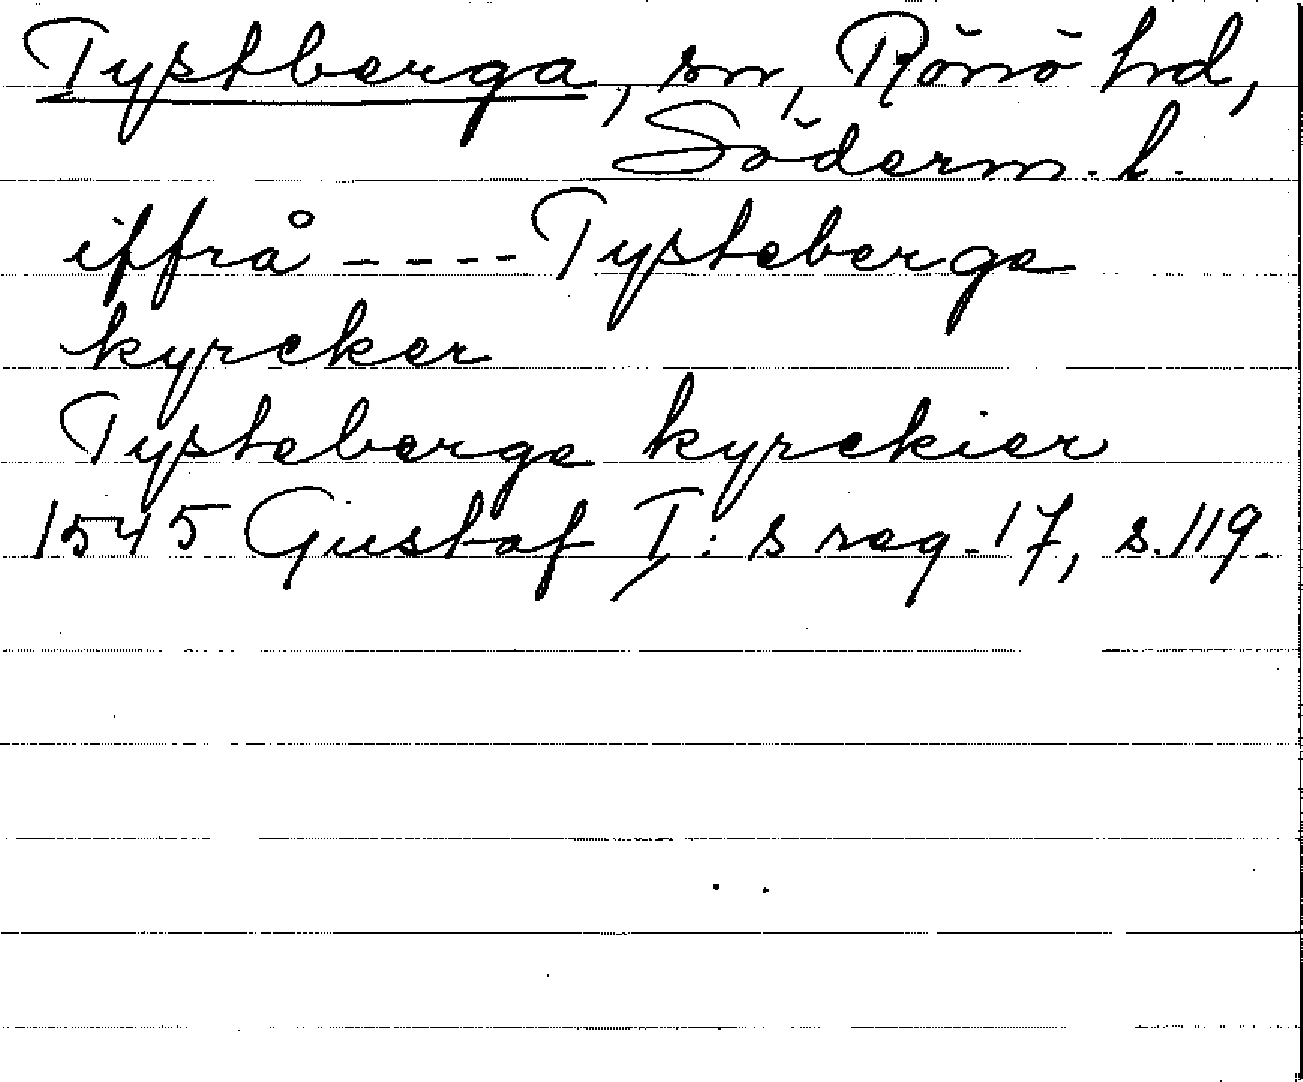 Tystberga, sn, Rönö hd,
Söderm. l.
iffrå ---- Tysteberge
kyrcker
Tysteberge kyrckier
1545 Gustaf I:s reg. 17, s. 119.